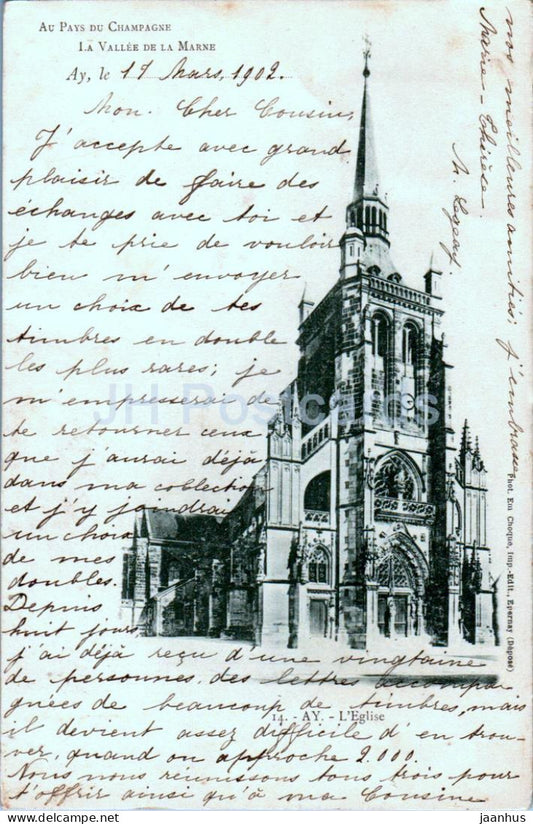 Au Pays du Champagne
La Vallée de la Marne
Ay, le 17 Mars, 1902.
Mon. Cher Cousin,
J'accepte avec grand
plaisir de faire des
échanges avec toi et
je te prie de vouloir
bien m'envoyer
un choix de tes
timbres en double
les plus rares; je
m'empresserai de
te retourner ceux
que j'aurai déjà
dans ma collection
et j'y joindrai
un choix
de mes
doubles.
Depuis
huit jours
j'ai déjà reçu d'une vingtaine
de personnes, des lettres accompa
gnées de beaucoup de timbres, mais
il devient assez difficile d'en trou-
ver, quand on approche 2.000.
Nous nous réunissons tous trois pour
t'offrir ainsi qu'à ma Cousine
nos meilleures amitiés; j'embrasse
Marie-Thérèse
14. - AY. - L'Eglise
Phot. Em Choque, Imp.-Edit., Epernay (Déposé)
JH Postcards
© jaanhus
www.delcampe.net